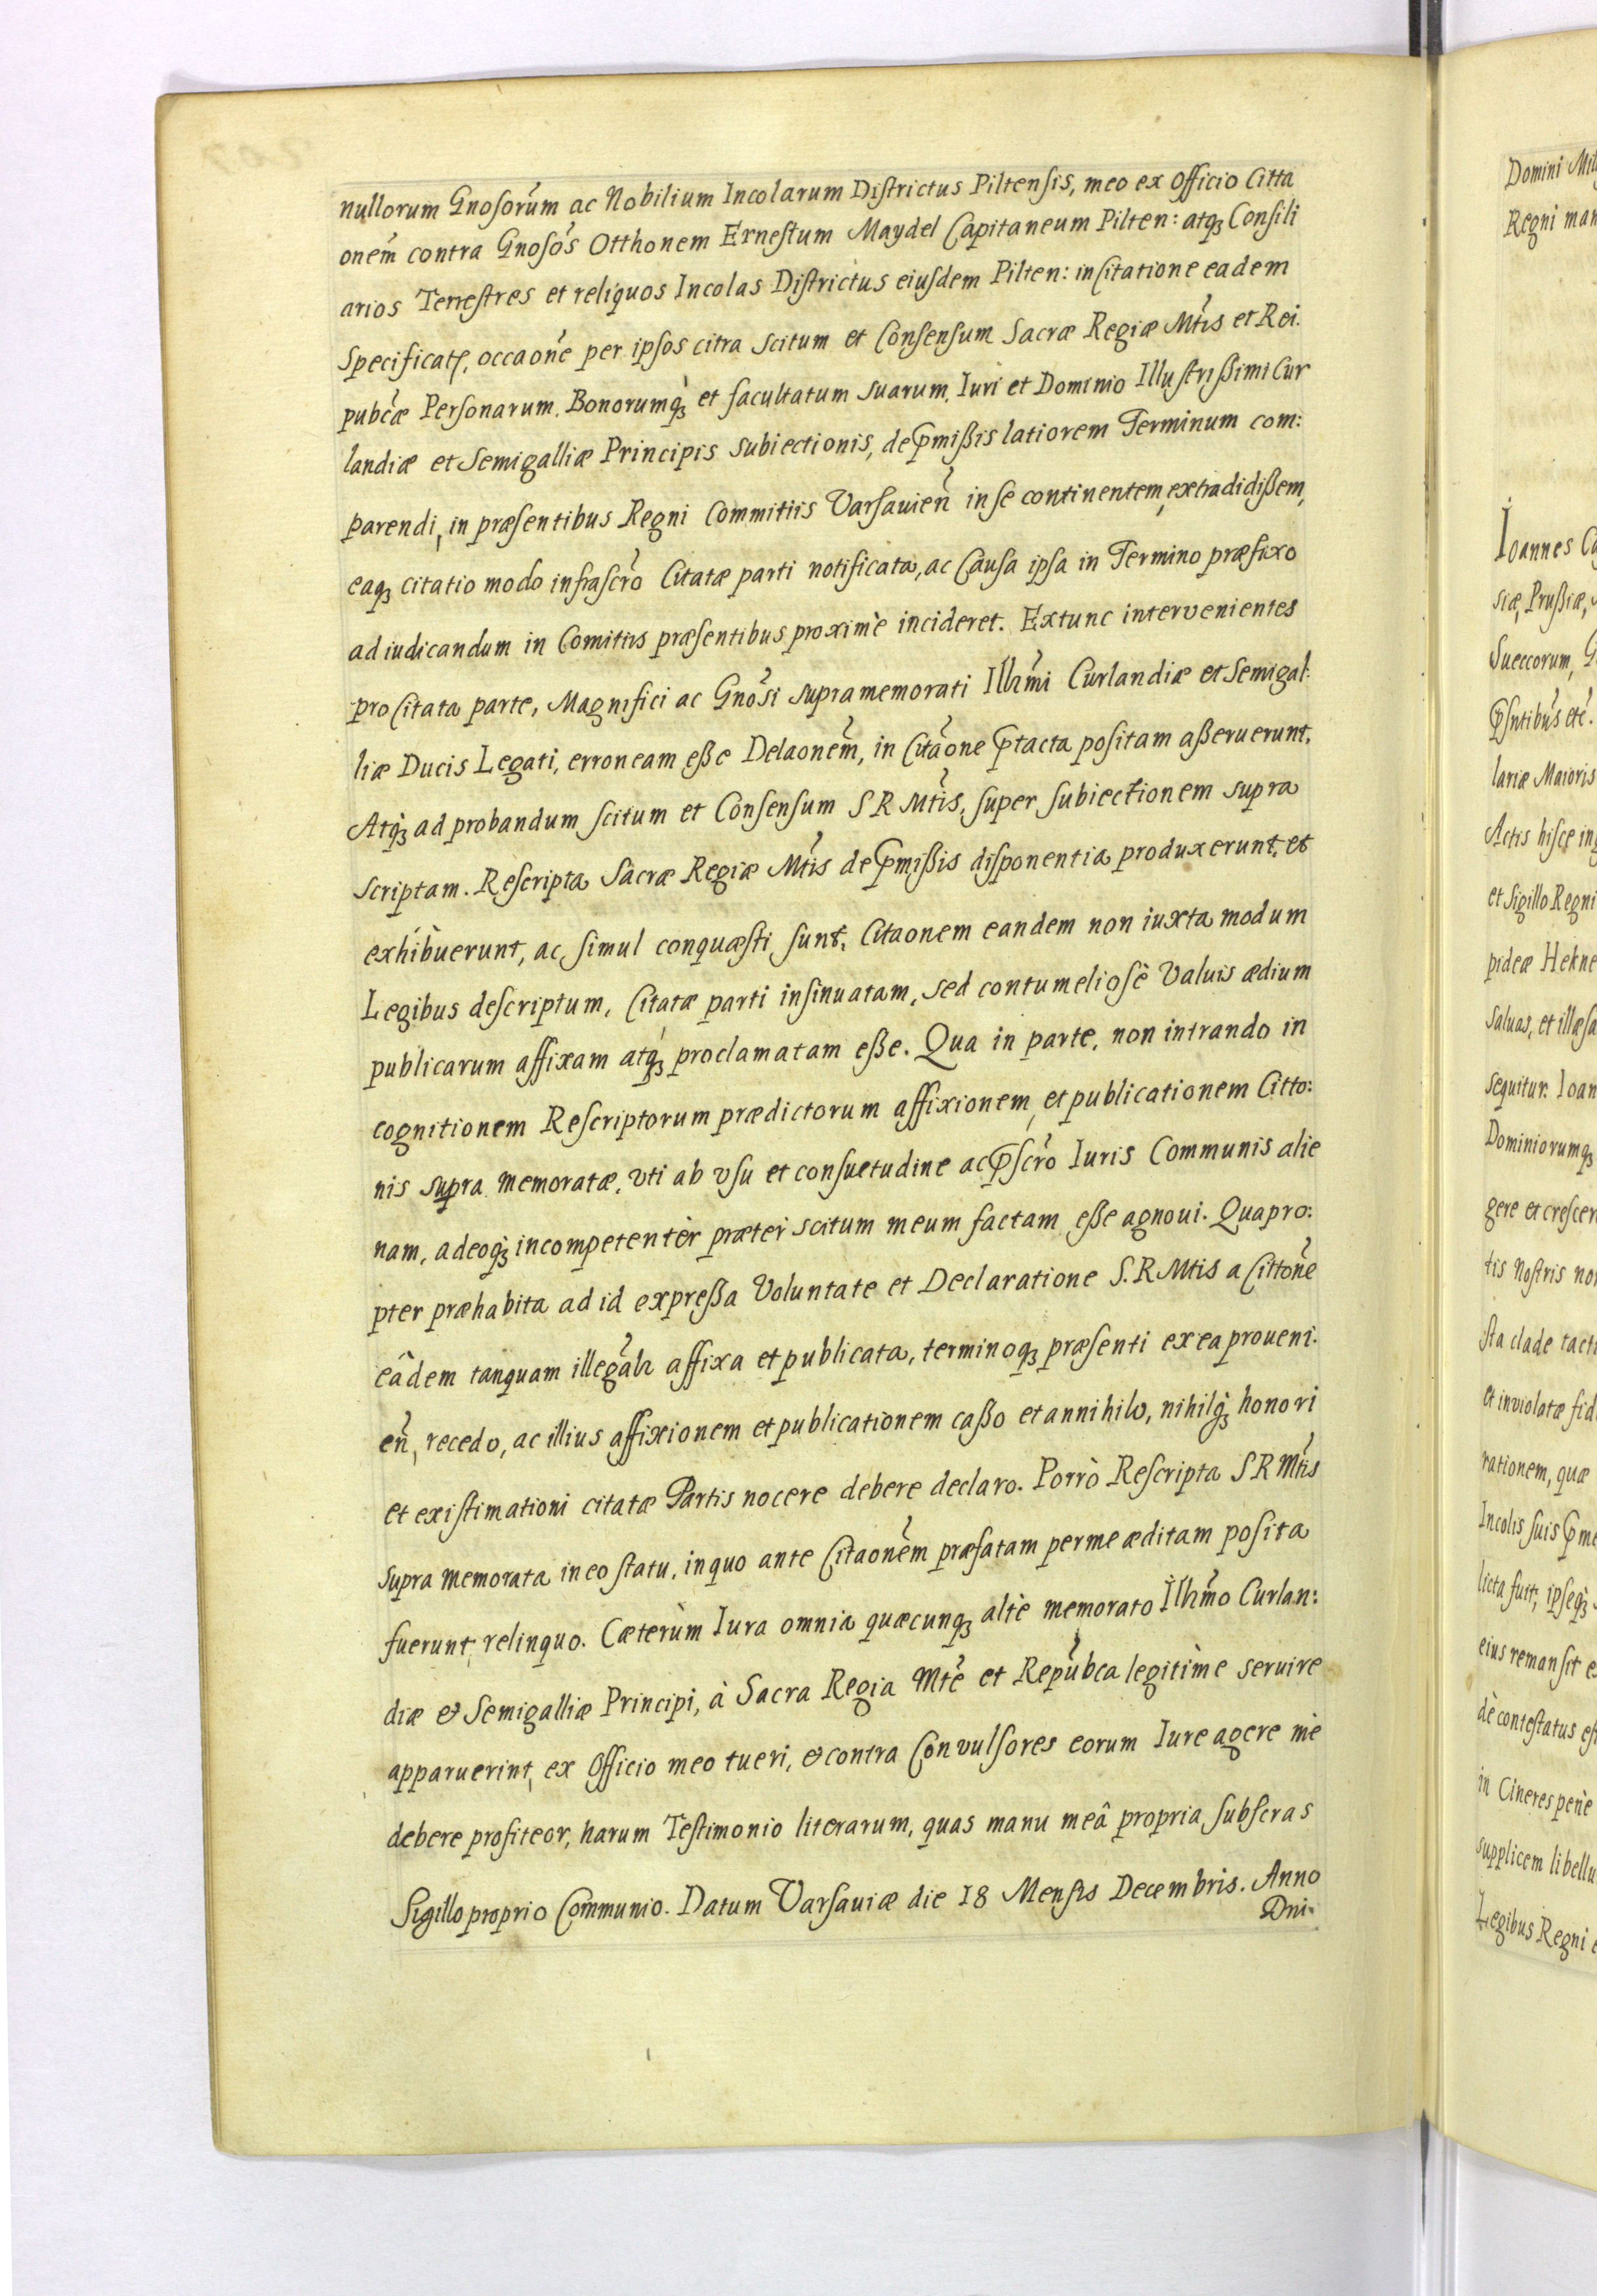 nullorum Gnosorum ac Nobilium Incolarum Districtus Piltensis, meo ex Officio Citta
onem contra Gnosos Otthonem Ernestum Maydel Capitaneum Pilten: atq3 Consili
arios Terrestres et reliquos Incolas Districtus eiusdem Pilten: in Citatione eadem
specificatę, occaone per ipsos citra scitum et Consensum Sacræ Regiæ Mtis et Rei.
pubcæ Personarum, Bonorumq3 et facultatum suarum, Iuri et Dominio Illustrißimi Cur
landiæ et Semigalliæ Principis subiectionis, de p̄mißis latiorem Terminum com:
parendi, in præsentibus Regni Commitiis Varsauien̄ in se continentem, extradidißem,
eaq3 citatio modo infrascro Citatæ parti notificata, ac Causa ipsa in Termino præfixo
ad iudicandum in Comitiis præsentibus proximè incideret. Extunc intervenientes
pro Citata parte, Magnifici ac Gnosi supra memorati Illmi Curlandiæ et Semigal:
liæ Ducis Legati, erroneam eße Delaonem, in Citaone p̄tacta positam aßeruerunt,
Atq3 ad probandum scitum et Consensum S R Mtis, super subiectionem supra
scriptam. Rescripta Sacræ Regiæ Mtis de p̄mißis disponentia produxerunt, et
exhibuerunt, ac simul conquæsti sunt, Citaonem eandem non iuxta modum
Legibus descriptum, Citatæ parti insinuatam, sed contumeliosè Valuis ædium
publicarum affixam atq3 proclamatam eße. Qua in parte, non intrando in
cognitionem Rescriptorum prædictorum affixionem, et publicationem Citto:
nis supra memoratæ, vti ab vsu et consuetudine ac p̄scro Iuris Communis alie
nam, adeoq3 incompetentèr præter scitum meum factam eße agnoui. Quapro:
pter præhabita ad id expreßa Voluntate et Declaratione S. R Mtis a Cittone
eâdem tanquam illegalr affixa et publicata, terminoq3 præsenti ex ea proueni.
en̄, recedo, ac illius affixionem et publicationem caßo et annihilo, nihilq3 honori
et existimationi citatæ Partis nocere debere declaro. Porrò Rescripta S R Mtis
supra memorata in eo statu, in quo ante Citaonem præfatam per me æditam posita
fuerunt, relinquo. Cæterùm Iura omnia quæcunq3 altè memorato Illmo Curlan:
diæ & Semigalliæ Principi, à Sacra Regia Mte et Repubca legitimè seruire
apparuerint, ex Officio meo tueri, & contra Convulsores eorum Iure agere me
debere profiteor, harum Testimonio literarum, quas manu meâ propria subscras
Sigillo proprio Communio. Datum Varsauiæ die 18 Mensis Decembris. Anno
Dni.
Domini
Regni
Ioannes
siæ, Prußiæ,
Sueccorum,
p̄sntibus etc.
lariæ Maioris
Actis hisce
et Sigillo Regni
pideæ
saluas, et
sequitur. Ioan
Dominiorumq3
gere et
tis Nostris
sta clade
et inviolatæ
rationem, quæ
Incolis suis
licta fuit, ipseq3
eius remansit
dè contestatus
in Cineres penè
supplicem
Legibus Regni